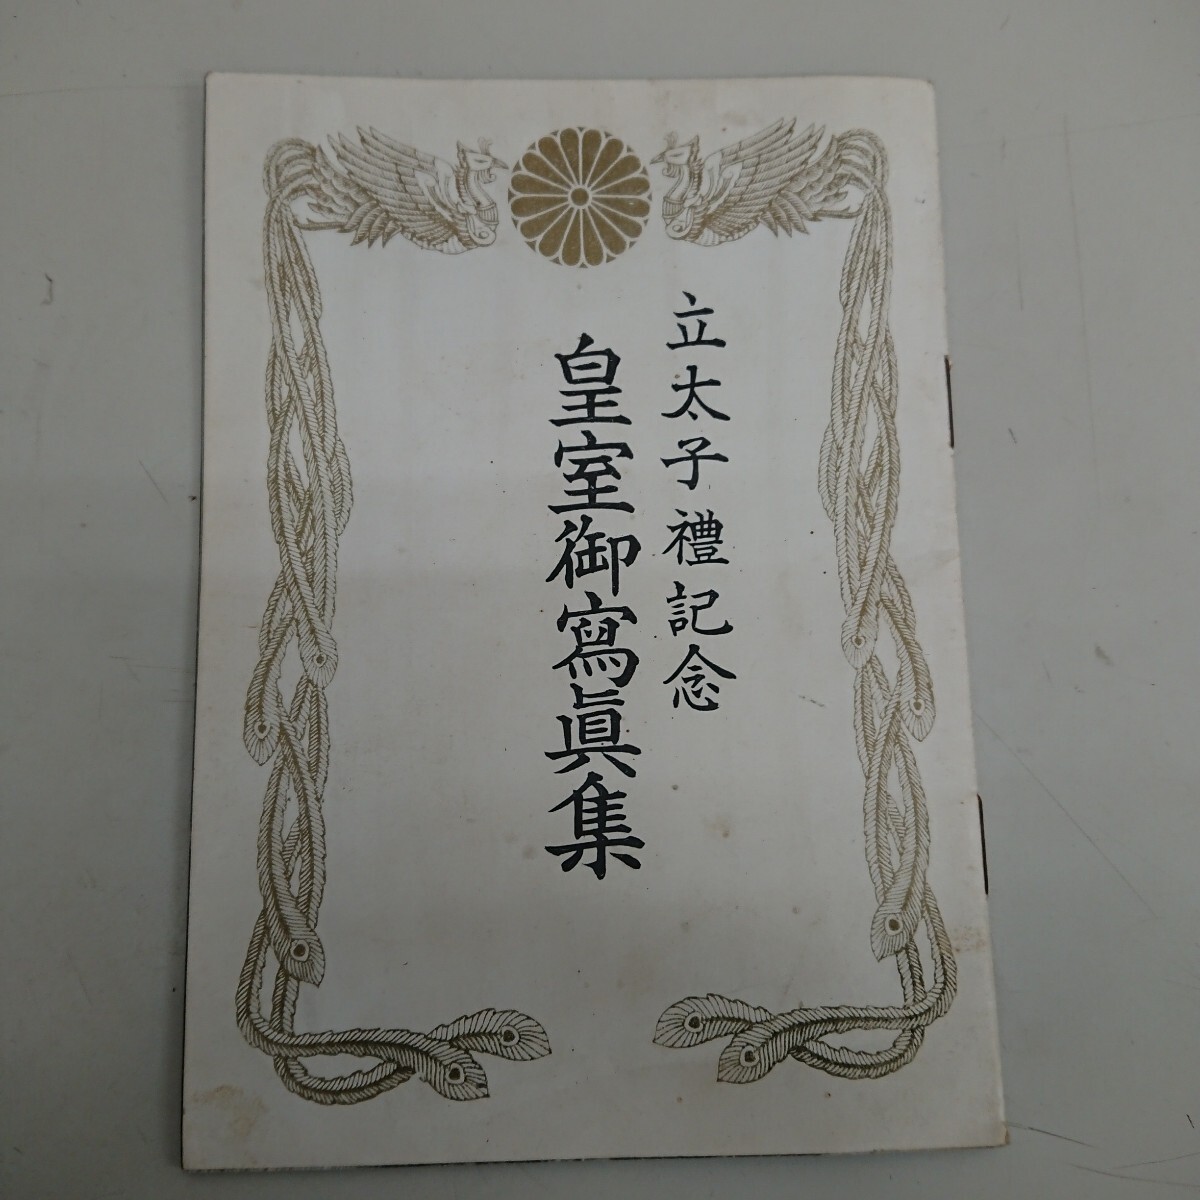 立太子禮記念
皇室御寫眞集